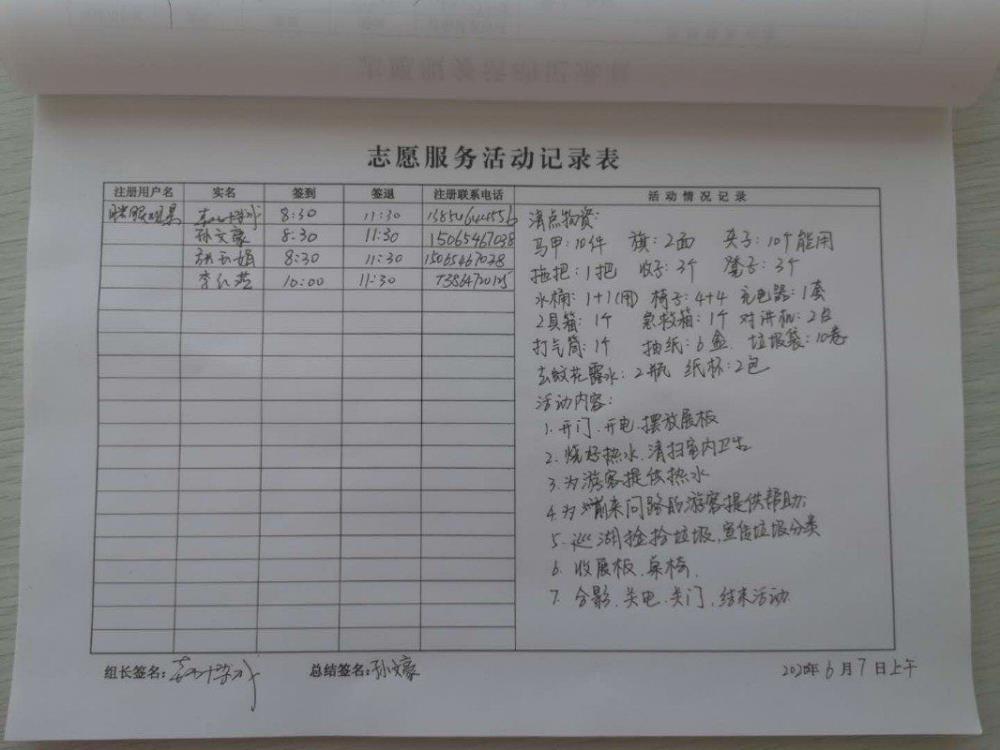 志愿服务活动记录表
注册用户名 实名 签到 签退 注册联系电话 活动情况记录
8:30 11:30
孙文豪 8:30 11:30 15065467038
8:30 11:30 15065467038
李红燕 10:00 11:30
清点物资:
马甲:10件 旗:2面 夹子:10个能用
拖把:1把 3个 凳子:3个
水桶:1+1(用) 椅子:4+4 充电器:1套
工具箱:1个 急救箱:1个 对讲机:2台
打气筒:1个 抽纸:6盒 垃圾袋:10卷
去蚊花露水:2瓶 纸杯:2包
活动内容:
1.开门、开电、摆放展板
2.烧好热水、清扫室内卫生
3.为游客提供热水
4.为前来问路的游客提供帮助
5.巡湖捡拾垃圾,宣传垃圾分类
6.收展板、桌椅,
7.合影、关电、关门,结束活动
组长签名: 总结签名:孙文豪 2020年6月7日上午